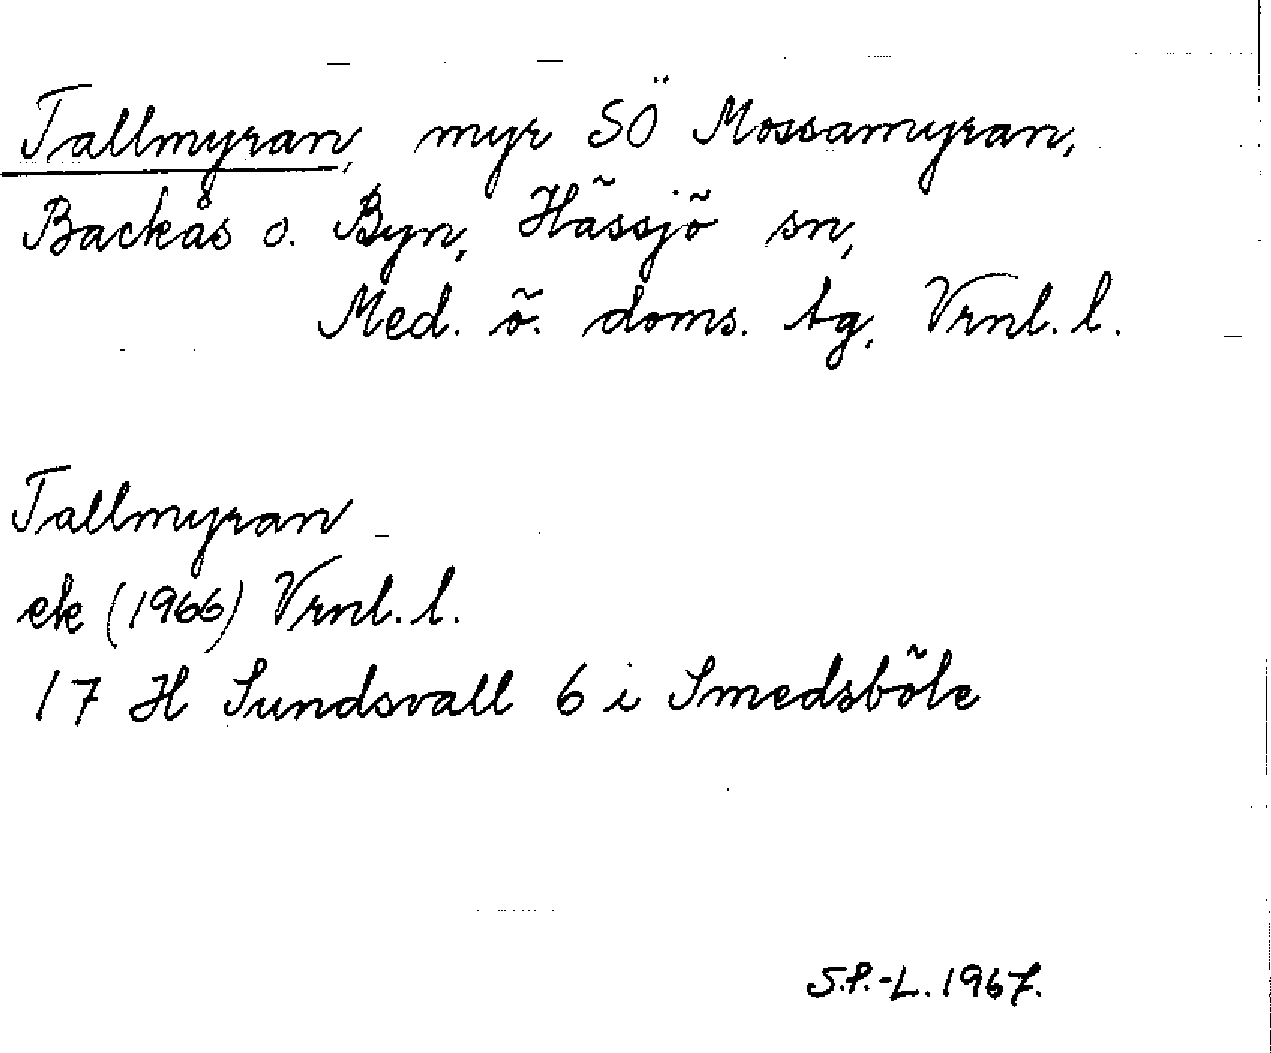 Tallmyran, myr SÖ Mossamyran,
Backås o. Byn, Hässjö sn,
Med. ö. doms. tg, Vrnl. l.
Tallmyran
ek (1966) Vrnl. l.
17 H Sundsvall 6 i Smedsböle
S.P.-L. 1967.